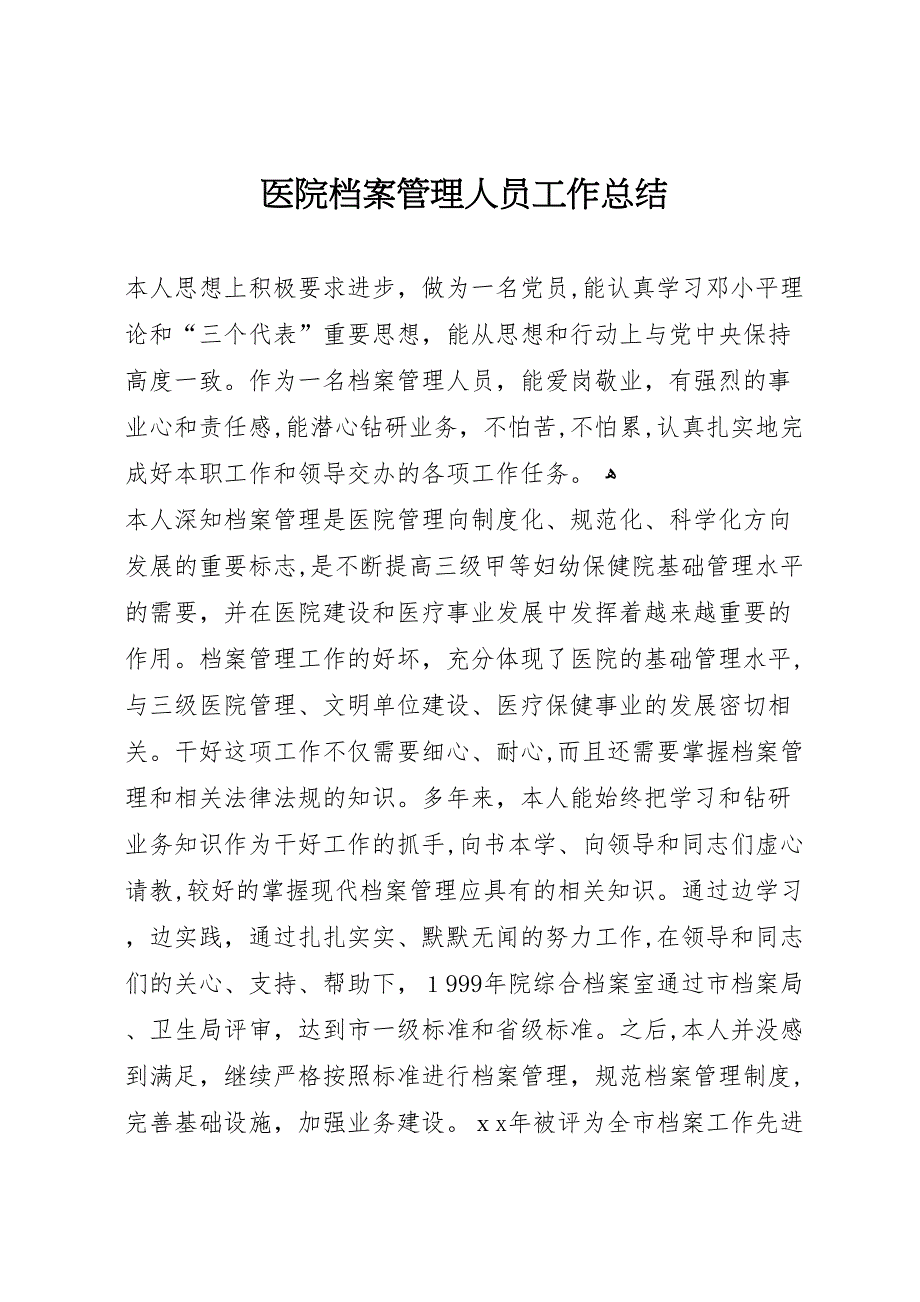 医院档案管理人员工作总结
本人思想上积极要求进步，做为一名党员,能认真学习邓小平理
论和“三个代表”重要思想，能从思想和行动上与党中央保持
高度一致。作为一名档案管理人员，能爱岗敬业，有强烈的事
业心和责任感,能潜心钻研业务，不怕苦,不怕累,认真扎实地完
成好本职工作和领导交办的各项工作任务。 ﻫ
本人深知档案管理是医院管理向制度化、规范化、科学化方向
发展的重要标志,是不断提高三级甲等妇幼保健院基础管理水平
的需要，并在医院建设和医疗事业发展中发挥着越来越重要的
作用。档案管理工作的好坏，充分体现了医院的基础管理水平,
与三级医院管理、文明单位建设、医疗保健事业的发展密切相
关。干好这项工作不仅需要细心、耐心,而且还需要掌握档案管
理和相关法律法规的知识。多年来，本人能始终把学习和钻研
业务知识作为干好工作的抓手,向书本学、向领导和同志们虚心
请教,较好的掌握现代档案管理应具有的相关知识。通过边学习
，边实践，通过扎扎实实、默默无闻的努力工作,在领导和同志
们的关心、支持、帮助下，1999年院综合档案室通过市档案局
、卫生局评审，达到市一级标准和省级标准。之后,本人并没感
到满足，继续严格按照标准进行档案管理，规范档案管理制度,
完善基础设施，加强业务建设。xx年被评为全市档案工作先进